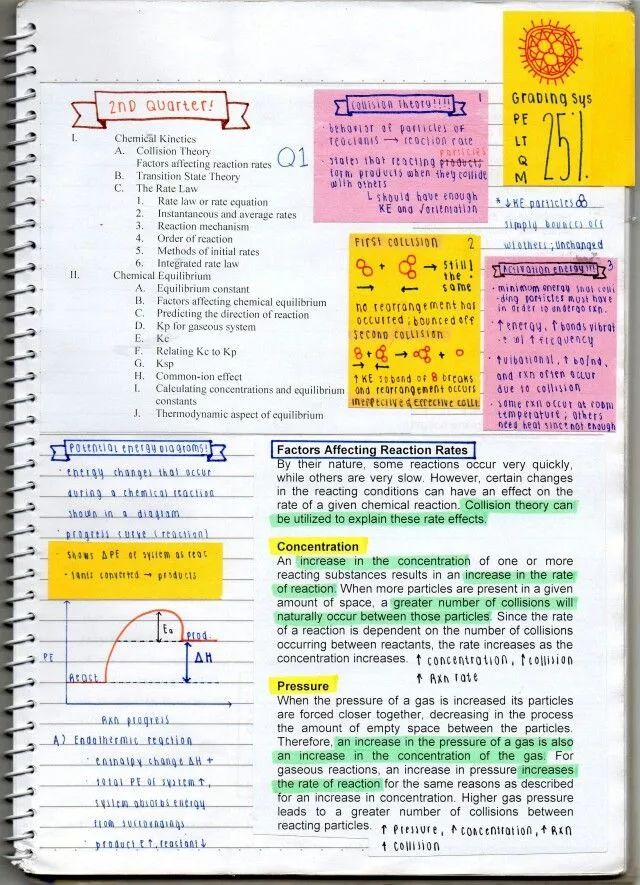 2ND QUARTER!
I. Chemical Kinetics
A. Collision Theory
Factors affecting reaction rates
B. Transition State Theory
C. The Rate Law
1. Rate law or rate equation
2. Instantaneous and average rates
3. Reaction mechanism
4. Order of reaction
5. Methods of initial rates
6. Integrated rate law
II. Chemical Equilibrium
A. Equilibrium constant
B. Factors affecting chemical equilibrium
C. Predicting the direction of reaction
D. Kp for gaseous system
E. Kc
F. Relating Kc to Kp
G. Ksp
H. Common-ion effect
I. Calculating concentrations and equilibrium
constants
J. Thermodynamic aspect of equilibrium
Q1
1
COLLISION THEORY!!!!
· behavior of particles of
reactants → reaction rate
particles
· states that reacting products
form products when they collide
with others
↳ should have enough
KE and √orientation
Grading Sys
PE
LT
Q
M
25%
* ↓KE particles
simply bounces off
w/others; unchanged
2
FIRST COLLISION
+ → still!
the!
same
no rearrangement has
occurred; bounced off
SECOND COLLISION
8 + → +
↑KE so bond of 8 breaks
and rearrangement occurs
ineffective & effective colli.
3
Activation energy!!!
· minimum energy that colli
-ding particles must have
in order to undergo rxn.
· ↑energy, ↑bonds vibrat
-e w/ ↑frequency
· ↑vibrational, ↑bond,
and rxn often occur
due to collision
· some rxn occur at room
temperature; others
need heat since not enough
POTENTIAL ENERGY DIAGRAMS!
· energy changes that occur
during a chemical reaction
shown in a diagram
· progress curve (reaction)
· shows ΔPE of system as reac
-tants converted → products
PE
React.
Ea
Prod.
ΔH
Rxn progress
A) Endothermic reaction
· enthalpy change ΔH +
· total PE of system↑,
system absorbs energy
from surroundings
· product E↑, reactant↓
Factors Affecting Reaction Rates
By their nature, some reactions occur very quickly,
while others are very slow. However, certain changes
in the reacting conditions can have an effect on the
rate of a given chemical reaction. Collision theory can
be utilized to explain these rate effects.
Concentration
An increase in the concentration of one or more
reacting substances results in an increase in the rate
of reaction. When more particles are present in a given
amount of space, a greater number of collisions will
naturally occur between those particles. Since the rate
of a reaction is dependent on the number of collisions
occurring between reactants, the rate increases as the
concentration increases. ↑ concentration, ↑collision
↑ Rxn rate
Pressure
When the pressure of a gas is increased its particles
are forced closer together, decreasing in the process
the amount of empty space between the particles.
Therefore, an increase in the pressure of a gas is also
an increase in the concentration of the gas. For
gaseous reactions, an increase in pressure increases
the rate of reaction for the same reasons as described
for an increase in concentration. Higher gas pressure
leads to a greater number of collisions between
reacting particles. ↑ Pressure, ↑ concentration, ↑ Rxn
↑ collision